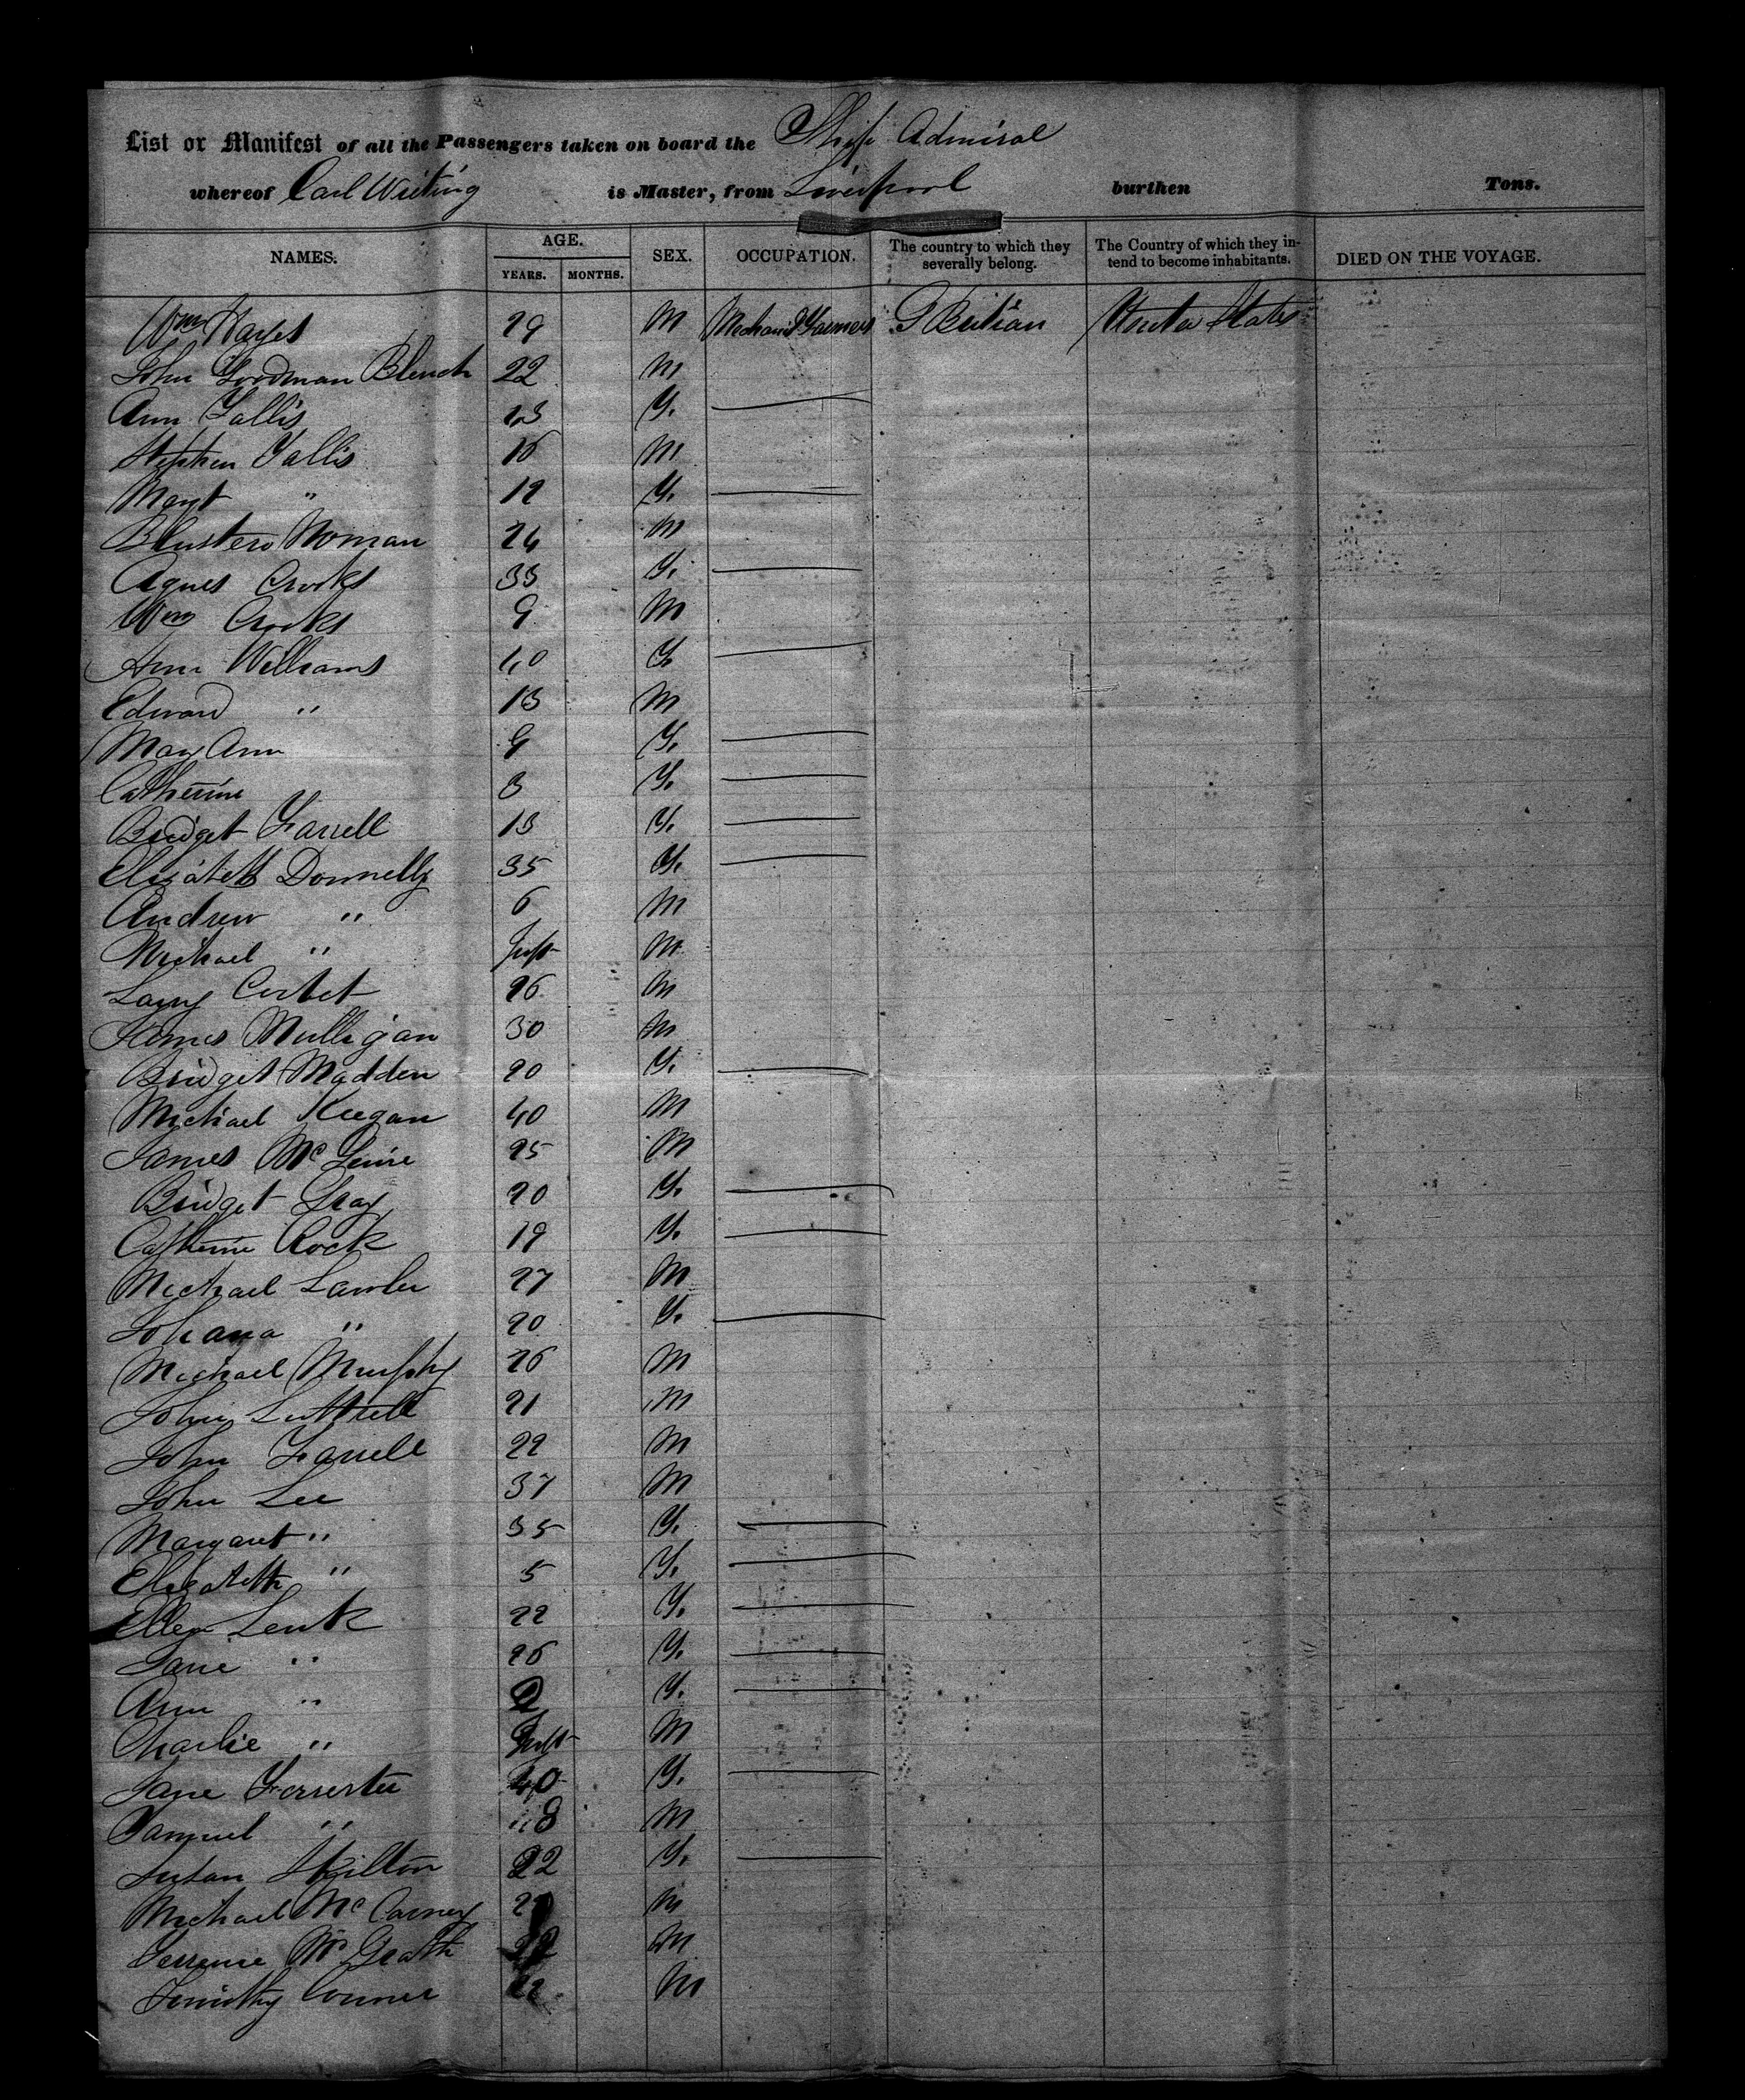 List or Manifest of all the Passengers taken on board the Ship Admiral
whereof Carl Wieting is Master, from Liverpool burthen Tons.
NAMES. AGE. YEARS. MONTHS. SEX. OCCUPATION. The country to which they severally belong. The Country of which they intend to become inhabitants. DIED ON THE VOYAGE.
Wm Hayes 29 M Mechanic & Farmers G Britian United States
John Goodman Blench 22 M
Ann Fallis 23 F.
Stephen Fallis 16 M
Margt " 12 F.
Norman 24 M
Agnes Crooks 33 F.
Wm Crooks 9 M
Ann Williams 40 F
Edward " 13 M
Mary Ann 9 F.
Catherine 3 F.
Bridget Farrell 13 F.
Elizabeth Donnelly 35 F.
Andrew " 6 M
Michael " Inft M
Larry Corbet 26 M
James Mulligan 30 M
Bridget Madden 20 F.
Michael Keegan 40 M
James Mc 25 M
Bridget Gray 20 F.
Catherine Rock 19 F.
Michael Lawler 27 M
Johana " 20 F.
Michael Murphy 26 M
John Luttrell 21 M
John Farrell 22 M
John Lee 37 M
Margaret " 35 F.
Elizabeth " 5 F.
Ellen 22 F.
Jane " 26 F.
Ann " 2 F.
Charlie " Inft M
Jane Forrester 40 F.
Samuel " 18 M
Susan Skilton 22 F.
Michael Mc Carney M
Terrence Mc Grath M
Timothy Conner 22 M